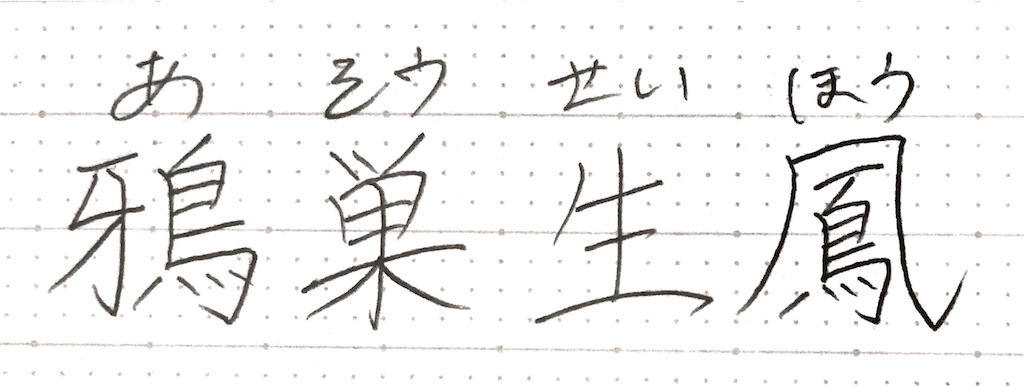 あ そう せい ほう
鴉巣生鳳